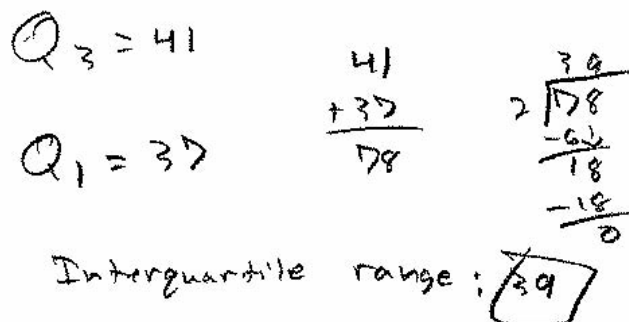 Q₃ = 41
Q₁ = 37
41
+37
78
39
2 78
-6↓
18
-18
0
Interquartile range: 39